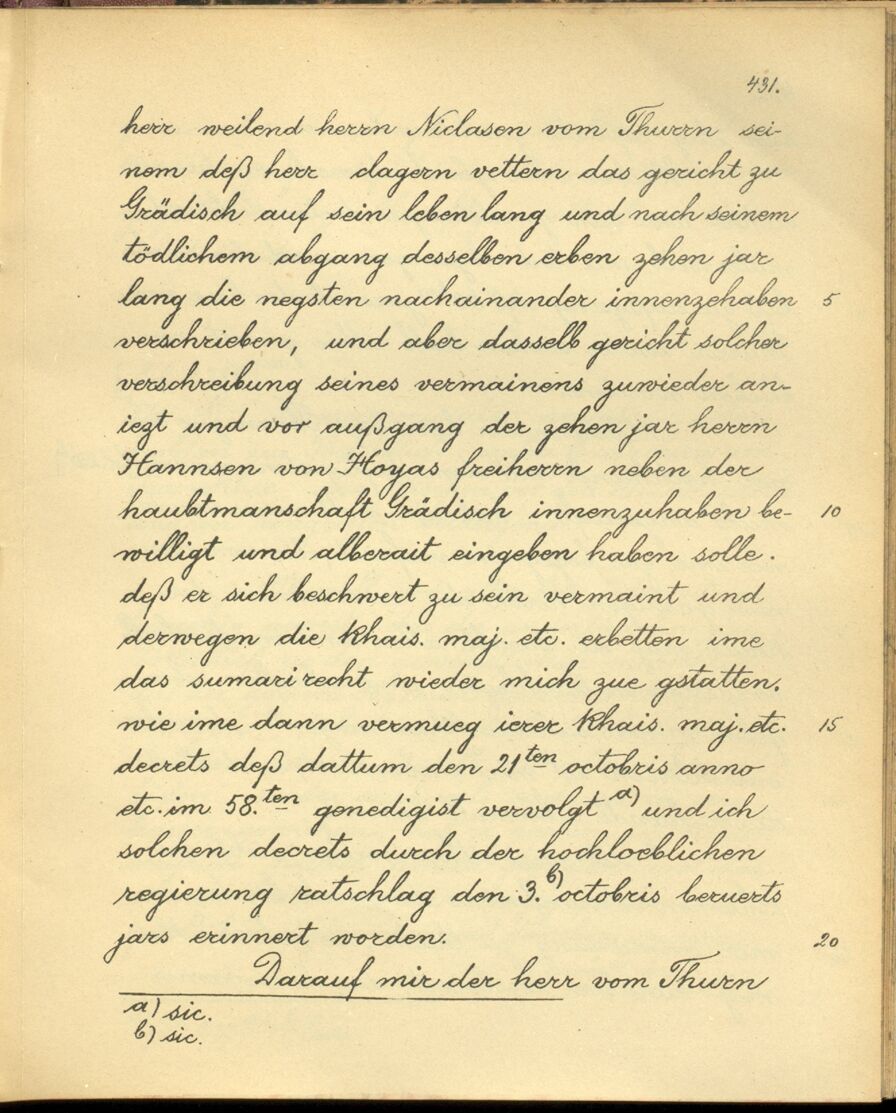 431.
herr weilend herrn Niclasen vom Thurrn sei-
nem deß herr clagern vettern das gericht zu
Grädisch auf sein leben lang und nach seinem
tödlichem abgang desselben erben zehen jar
lang die negsten nachainander innenzehaben 5
verschrieben, und aber dasselb gericht solcher
verschreibung seines vermainens zuwieder an-
iezt und vor außgang der zehen jar herrn
Hannsen von Hoyas freiherrn neben der
haubtmanschaft Grädisch innenzuhaben be- 10
willigt und alberait eingeben haben solle.
deß er sich beschwert zu sein vermaint und
derwegen die khais. maj. etc. erbetten ime
das sumari recht wieder mich zue gstatten.
wie ime dann vermueg ierer khais. maj. etc. 15
decrets deß dattum den 21ten octobris anno
etc. im 58.ten genedigist vervolgt a) und ich
solchen decrets durch der hochloeblichen
regierung ratschlag den 3. b) octobris beruerts
jars erinnert worden. 20
Darauf mir der herr vom Thurn
a) sic.
b) sic.